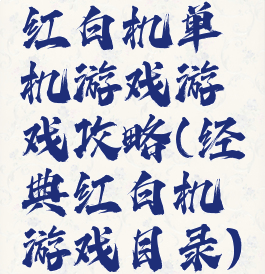 红白机单
机游戏游
戏攻略(经
典红白机
游戏目录)